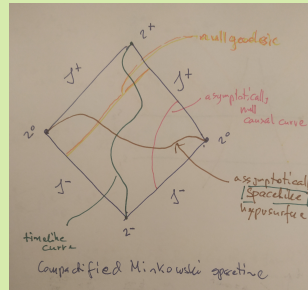 2⁺
null geodesic
J⁺
J⁺
asymptotically
null
causal curve
2⁰
2⁰
J⁻
J⁻
asymptotically
spacelike
hypersurface
2⁻
timelike
curve
Compactified Minkowski spacetime